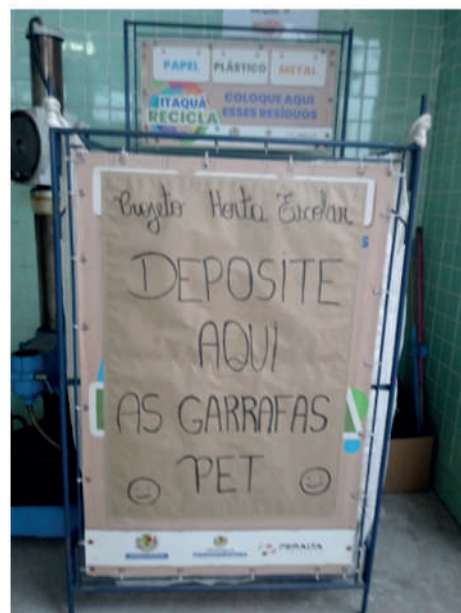 PAPEL PLÁSTICO METAL
ITAQUÁ
RECICLA
COLOQUE AQUI
ESSES RESÍDUOS
Projeto Horta Escolar
DEPOSITE
AQUI
AS GARRAFAS
PET
PERALTA